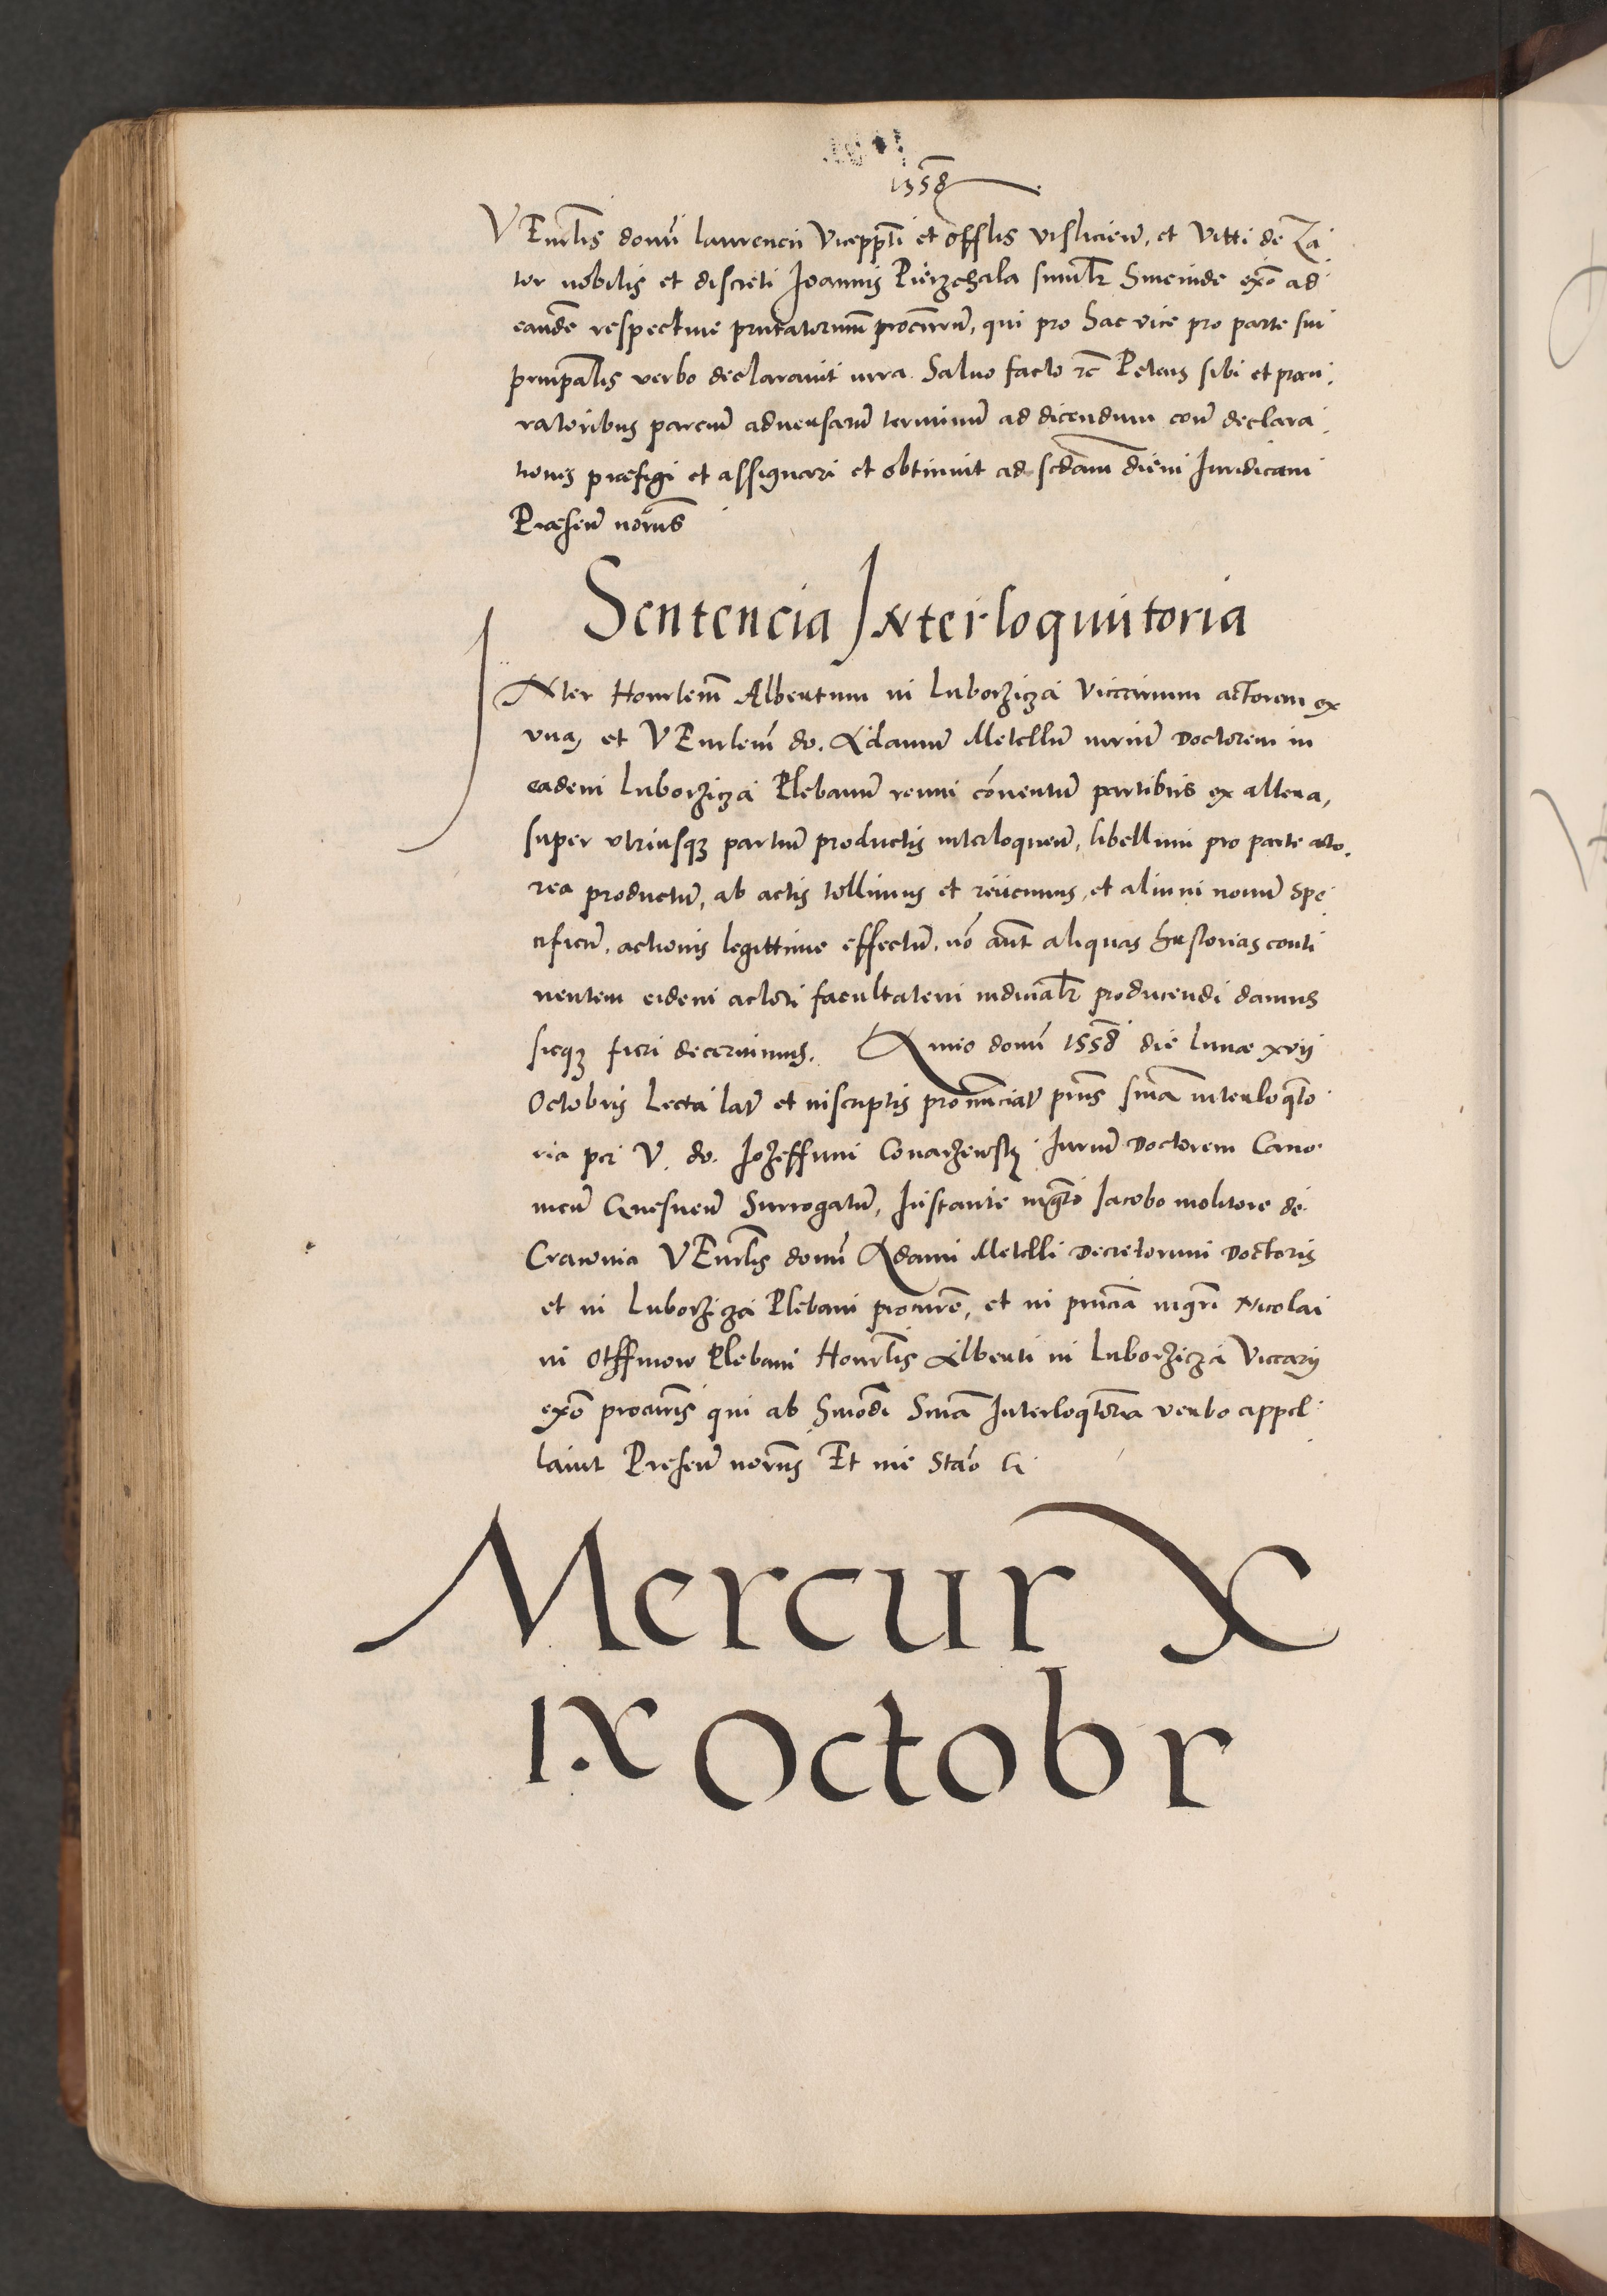 1558
VEnrlis domi laurencii Viceppti et offlis vislicien, et Vitti de Za
tor nobilis et discreti Joannis Pierzchala simulr hincinde exo ad
eande respective prutatorum procurm, qui pro hac vice pro parte sui
prinpalis verbo declaravit iura. Salvo facto rc Petens sibi et procu
ratoribus parcium adversarum terminum ad dicendum con declara
tionis præfigi et assignari et obtinuit ad scdam diem Juridicam
Præsen norus
Sentencia Interloquutoria
INter Honrlem Albertum in Luborzicza Viccarium actorem ex
una, et VEnrlem do. Adamum Metellum iurium Doctorem in
eadem Luborzicza Plebanum reum conventum partibus ex altera,
super utriusq3 partium productis interloquen, libellum pro parte acto
rea productum, ab actis tollimus et reiicimus, et alium novum spe
cificum, actionis legittime effectum, no aut aliquas historias conti
nentem eidem actori facultatem indicialr producendi damus
sicq3 fieri decernimus. Anno domi 1558 die lunæ xvij
Octobris Lecta lat et inscriptis pronunciat pns snia interloqto
ria per V. do. Jozeffum Conarzewsky Jurium Doctorem Cano
nicum Gnesnen Surrogatum, Instante mgro Jacobo molitore de
Cracovia VEnrlis domi Adami Metelli Decretorum Doctoris
et in Luborzicza Plebani procure, et in pncia mgri Nicolai
in Otffinow Plebani Honrlis Alberti in Luborzicza Viccarij
exo procuris qui ab hmodi Snia Interloqtoria verbo appel
lavit Præsen norus Et me Stao
Mercur X
IX Octobr